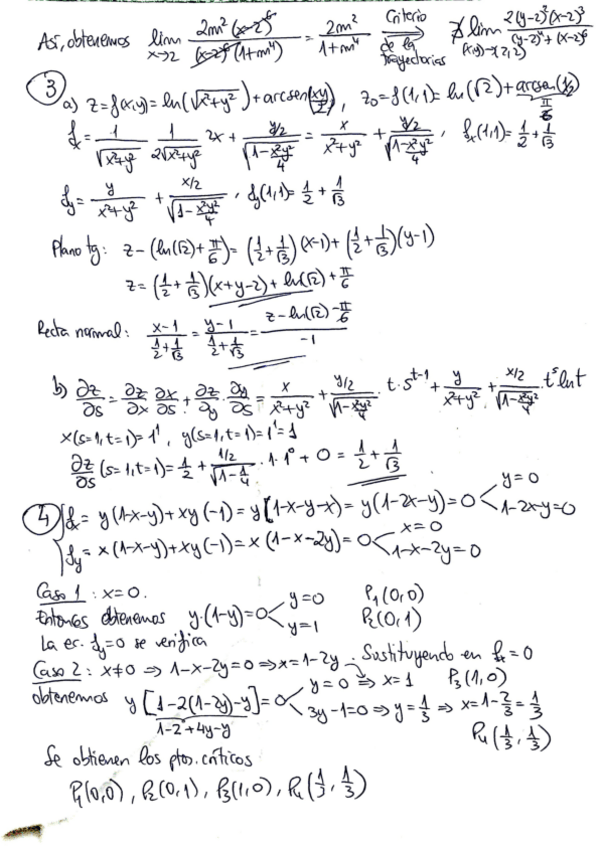 Así, obtenemos lim x→2 2m²(x-2)⁶ / (x-2)⁶(1+m⁴) = 2m² / 1+m⁴ Criterio de la trayectorias ∄ lim (x,y)→(2,2) 2(y-2)²(x-2)³ / (y-2)⁴+(x-2)⁶
③ a) z=f(x,y)=ln(√x²+y²)+arcsen(xy/2), z₀=f(1,1)=ln(√2)+arcsen(1/2) π/6
fx = 1/√x²+y² 1/2√x²+y² 2x + y/2 / √1-x²y²/4 = x/x²+y² + y/2 / √1-x²y²/4, fx(1,1)=1/2+1/√3
fy = y/x²+y² + x/2 / √1-x²y²/4, fy(1,1)=1/2+1/√3
Plano tg: z-(ln(√2)+π/6)=(1/2+1/√3)(x-1)+(1/2+1/√3)(y-1)
z=(1/2+1/√3)(x+y-2)+ln(√2)+π/6
Recta normal: x-1 / 1/2+1/√3 = y-1 / 1/2+1/√3 = z-ln(√2)-π/6 / -1
b) ∂z/∂s = ∂z/∂x ∂x/∂s + ∂z/∂y · ∂y/∂s = x/x²+y² + y/2 / √1-x²y²/4 · t·s^t-1 + y/x²+y² + x/2 / √1-x²y²/4 · t^s ln t
x(s=1,t=1)=1¹, y(s=1,t=1)=1¹=1
∂z/∂s (s=1,t=1)=1/2 + 1/2 / √1-1/4 · 1·1⁰ + 0 = 1/2+1/√3
④ fx = y(1-x-y)+xy(-1)=y[1-x-y-x)=y(1-2x-y)=0 < y=0 1-2x-y=0
fy = x(1-x-y)+xy(-1)=x(1-x-2y)=0 < x=0 1-x-2y=0
Caso 1: x=0.
Entonces obtenemos y·(1-y)=0 < y=0 P₁(0,0) y=1 P₂(0,1)
La ec. fy=0 se verifica
Caso 2: x≠0 ⇒ 1-x-2y=0 ⇒ x=1-2y. Sustituyendo en fx=0
obtenemos y[1-2(1-2y)-y]=0 < y=0 ⇒ x=1 P₃(1,0) 3y-1=0 ⇒ y=1/3 ⇒ x=1-2/3=1/3
1-2+4y-y P₄(1/3, 1/3)
Se obtienen los ptos. críticos
P₁(0,0), P₂(0,1), P₃(1,0), P₄(1/3, 1/3)